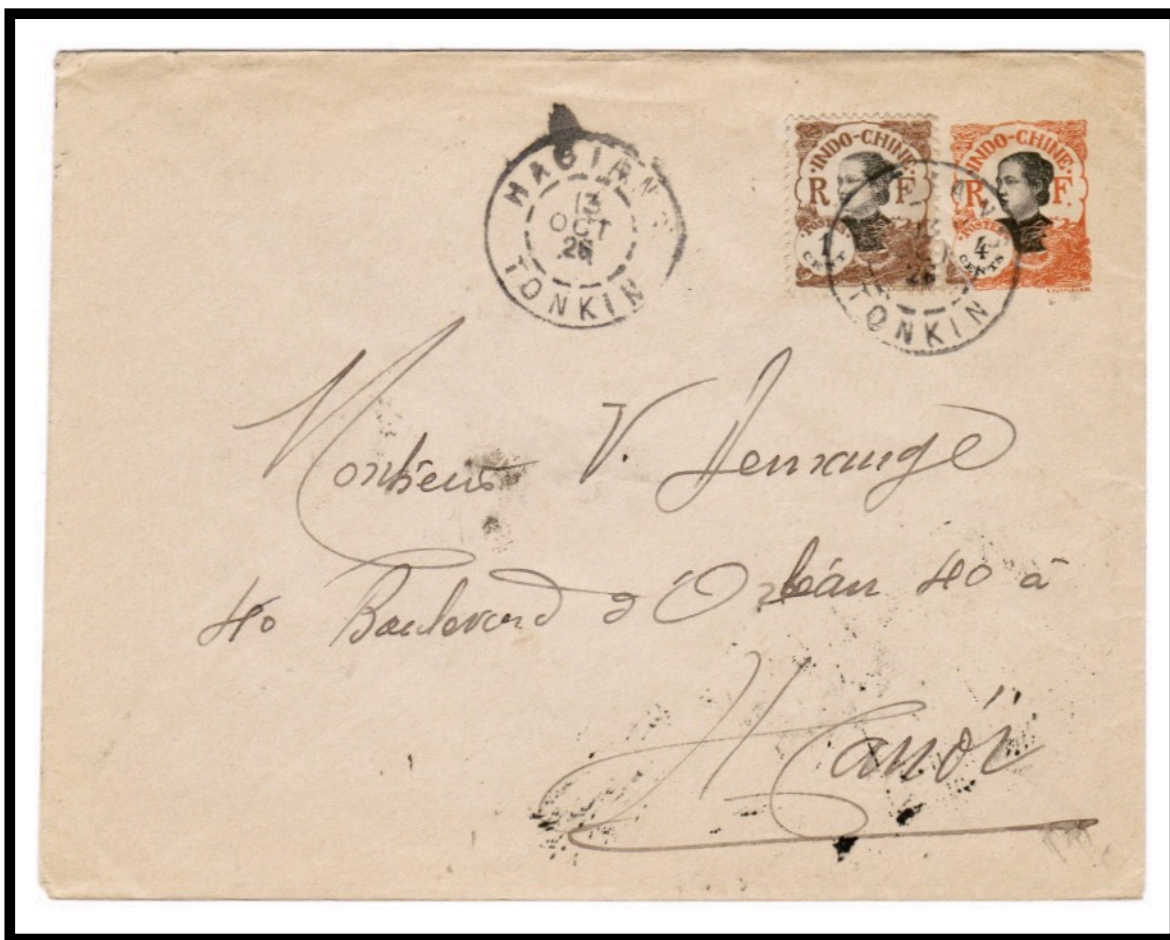 HAGIANG
13
OCT
26
TONKIN
INDO-CHINE
R F
POSTES
1
CENT
INDO-CHINE
R F
POSTES
4
CENTS
26
TONKIN
Monsieur V. Demange
40 Boulevard d'Orléan 40 à
Hanoï